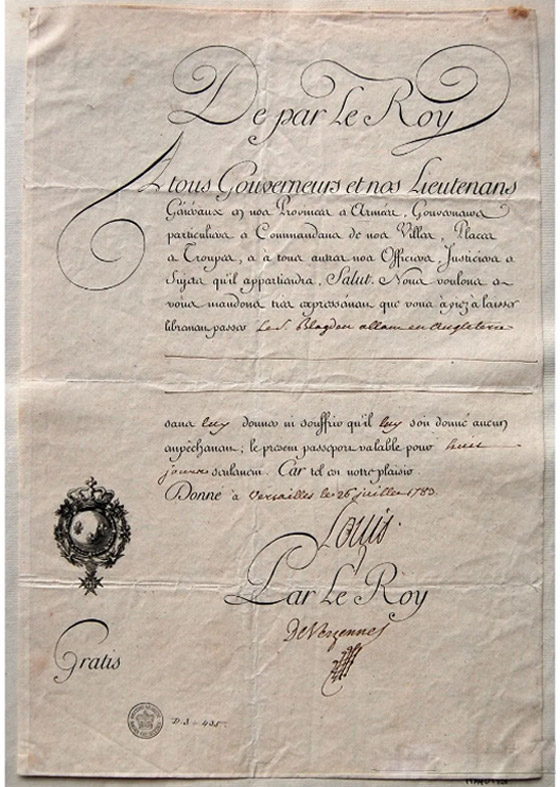 De par Le Roy
A tous Gouverneurs et nos Lieutenans
Généraux en nos Provinces et Armées, Gouverneurs
particuliers et Commandans de nos Villes, Places
et Troupes, et à tous autres nos Officiers, Justiciers et
Sujets qu'il appartiendra, Salut. Nous voulons et
vous mandons très expressément que vous ayiez à laisser
librement passer Le S. Blagden allant en Angleterre
sans luy donner ni souffrir qu'il luy soit donné aucun
empêchement; le présent passeport valable pour huit
jours seulement. Car tel est notre plaisir.
Donné à Versailles le 26 juillet 1783
Louis.
Par Le Roy
De Vergennes
Gratis